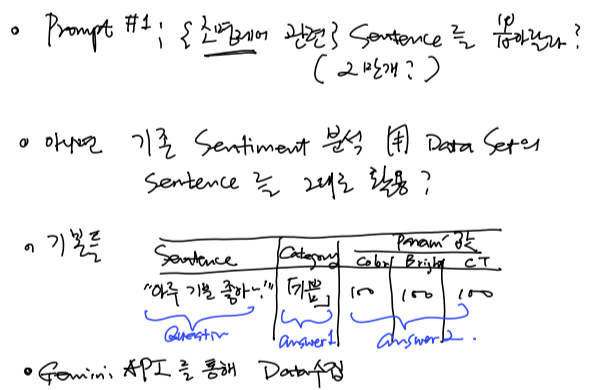 Prompt #1; {스펙트럼 관련} Sentence를 뽑아달라?
(2만개?)
아니면 기존 Sentiment 분석 用 Data Set의
Sentence 를 그대로 활용?
기본틀
Param 값
Sentence Category Color Bright CT
"아주 기분 좋아~!" 「기쁨」 100 100 100
Question answer1 answer2.
Gemini API를 통해 Data수집